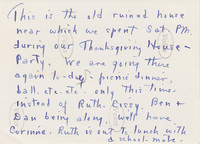 This is the old ruined house
near which we spent Sat. P.M.
during our Thanksgiving House-
Party. We are going there
again to-day - picnic dinner,
ball, etc. etc. only this time
instead of Ruth, Cissy, Ben &
Dan being along, we'll have
Corinne. Ruth is out to lunch with
a school-mate.